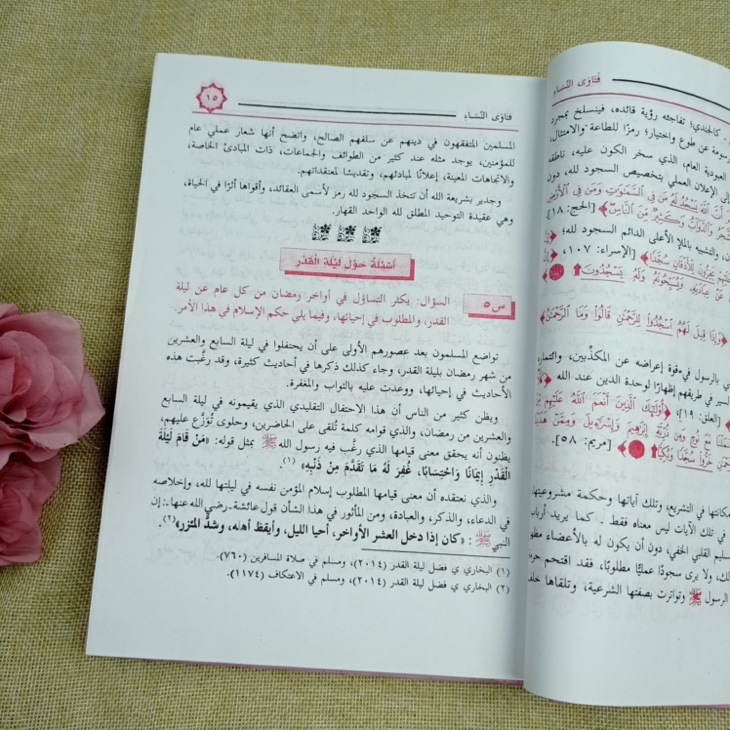 فتاوى النساء
١٥
المسلمين المتفقهون في دينهم عن سلفهم الصالح، واتضح أنها شعار عملي عام
للمؤمنين، يوجد مثله عند كثير من الطوائف والجماعات، ذات المبادئ الخاصة،
والاتجاهات المعينة، إعلانًا لمبادئهم، وتقديسًا لمعتقداتهم.
وجدير بشريعة الله أن تتخذ السجود لله رمز لأسمى العقائد، وأقواها أثرًا في الحياة،
وهي عقيدة التوحيد المطلق لله الواحد القهار.
أسئلة حول ليلة القدر
س٥
السؤال: يكثر التساؤل في أواخر رمضان من كل عام عن ليلة
القدر، والمطلوب في إحيائها، وفيما يلي حكم الإسلام في هذا الأمر.
تواضع المسلمون بعد عصورهم الأولى على أن يحتفلوا في ليلة السابع والعشرين
من شهر رمضان بليلة القدر، وجاء كذلك ذكرها في أحاديث كثيرة، وقد رغَّبت هذه
الأحاديث في إحيائها، ووعدت عليه بالثواب والمغفرة.
ويظن كثير من الناس أن هذا الاحتفال التقليدي الذي يقيمونه في ليلة السابع
والعشرين من رمضان، والذي قوامه كلمة تُلقى على الحاضرين، وحلوى تُوَزَّع عليهم،
يظنون أنه يحقق معنى قيامها الذي رغَّب فيه رسول الله ﷺ بمثل قوله: «مَنْ قَامَ لَيْلَةَ
القَدْرِ إِيمَانًا وَاحْتِسَابًا، غُفِرَ لَهُ مَا تَقَدَّمَ مِنْ ذَنْبِهِ» (١).
والذي نعتقده أن معنى قيامها المطلوب إسلام المؤمن نفسه في ليلتها لله، وإخلاصه
في الدعاء، والذكر، والعبادة، ومن المأثور في هذا الشأن قول عائشة ـ رضي الله عنها ـ: إن
النبي ﷺ : «كان إذا دخل العشر الأواخر، أحيا الليل، وأيقظ أهله، وشدَّ المئزر» (٢).
(١) البخاري ي فضل ليلة القدر (٢٠١٤)، ومسلم في صلاة المسافرين (٧٦٠).
(٢) البخاري ي فضل ليلة القدر (٢٠١٤)، ومسلم في الاعتكاف (١١٧٤).
فتاوى النساء
كالجندي؛ تفاجئه رؤية قائده، فينسلخ بمجرد
عن طوع واختيار؛ رمزًا للطاعة والامتثال،
العبودية العام، الذي سخر الكون عليه،
إلى الإعلان العملي بتخصيص السجود لله، دون
[الحج: ١٨]
والتشبيه بالملإ الأعلى الدائم السجود لله؛
[الإسراء: ١٠٧،
﴿وَإِذَا قِيلَ لَهُمُ اسْجُدُوا لِلرَّحْمَٰنِ قَالُوا وَمَا الرَّحْمَٰنُ﴾
بالرسول في قوة إعراضه عن المكذِّبين،
السير في طريقهم إظهارًا لوحدة الدين عند الله
[العلق: ١٩]؛ ﴿أُولَٰئِكَ الَّذِينَ أَنْعَمَ اللَّهُ عَلَيْهِم
[مريم: ٥٨].
مكانتها في التشريع، وتلك آياتها وحكمة مشروعيتها
في تلك الآيات ليس معناه فقط ـ كما يريد
القلبي الخفي، دون أن يكون له بالأعضاء
ولا يرى سجودًا عمليًّا مطلوبًا، فقد اقتحم
الرسول ﷺ وتواترت بصفتها الشرعية، وتلقاها